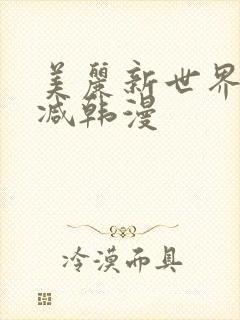 美麗新世界
减韩漫
冷漠而具